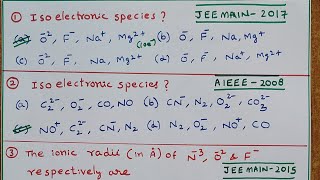 ① Isoelectronic species? JEE MAIN-2017
(a) O²⁻, F⁻, Na⁺, Mg²⁺ (10e⁻) (b) O⁻, F⁻, Na, Mg⁺
(c) O²⁻, F⁻, Na, Mg²⁺ (d) O⁻, F⁻, Na⁺, Mg²⁺
② Isoelectronic species? AIEEE-2008
(a) C₂²⁻, O₂⁻, CO, NO (b) CN⁻, N₂, O₂²⁻, C₂²⁻
(c) NO⁺, C₂²⁻, CN⁻, N₂ (d) N₂, O₂⁻, NO⁺, CO
③ The ionic radii (in Å) of N⁻³, O²⁻ & F⁻
respectively are JEE MAIN-2015